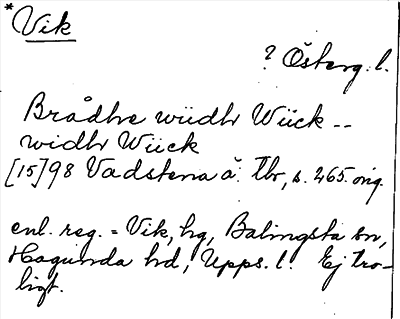 *Vik
? Österg. l.
Brådhe wüdhr Wiick --
widhr Wiick
[15]98 Vadstena ä. Tbr, s. 265. orig.
enl. reg. = Vik, hg, Balingsta sn,
Hagunda hd, Upps. l. Ej tro-
ligt.